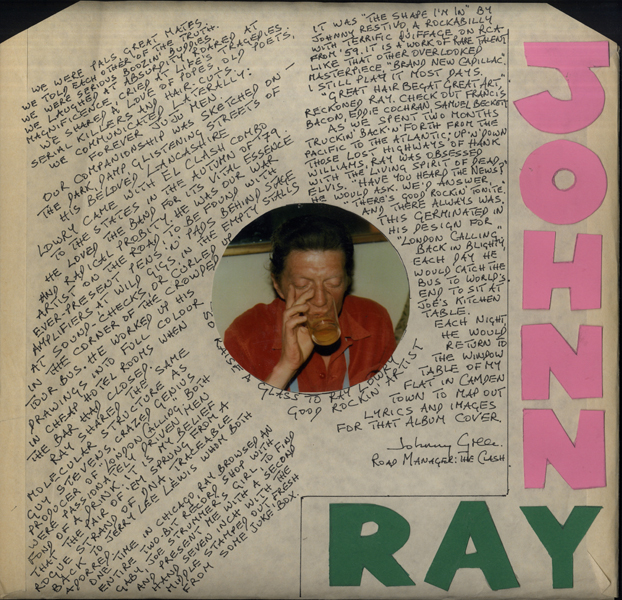 WE WERE PALS GREAT MATES.
WE TOLD EACH OTHER THE TRUTH.
WE WERE SERIOUS BOOZIN' BUDDIES.
WE LAUGHED AT ABSURDITY, ROARED AT
MAGNIFICENCE CRIED AT LIFE'S TRAGEDIES.
WE SHARED A LOVE OF POPES, OLD POETS,
SERIAL KILLERS AND HAIR-CUTS.
WE COMMUNICATED LATERALLY: –
FOREVER JUJU MEN
OUR COMPANIONSHIP WAS SKETCHED ON
THE DARK, DAMP GLISTENING STREETS OF
HIS BELOVED LANCASHIRE
LOWRY CAME WITH EL CLASH COMBO
TO THE STATES IN THE AUTUMN OF '79.
HE LOVED THE BAND FOR ITS VITAL ESSENCE
AND RADICAL PROBITY. HE WAS OUR WAR
ARTIST ON THE ROAD TO BE FOUND WITH
EVER-PRESENT PENS 'N' PADS BEHIND STAGE
AMPLIFIERS AT WILD GIGS, IN THE EMPTY STALLS
AT SOUND-CHECKS, OR CURLED UP
IN THE CORNER OF THE CROWDED
TOUR BUS. HE WORKED UP HIS
DRAWINGS INTO FULL COLOUR
IN CHEAP HOTEL ROOMS WHEN
THE BAR HAD CLOSED.
RAY SHARED THE SAME
MOLECULAR STRUCTURE AS
GUY STEVENS, CRAZED GENIUS
PRODUCER OF 'LONDON CALLING'. BOTH
WERE PASSIONATELY DRIVEN MEN
FOND OF A DRINK. IT IS MY BELIEF
THAT THE PAIR OF 'EM SPRUNG FROM A
ROGUE STRAND OF DNA TRACEABLE
BACK TO JERRY LEE LEWIS WHOM BOTH
ADORRED.
ONE TIME IN CHICAGO RAY BROWSED AN
ENTIRE TWO-BIT RECORD SHOP WITH
GABY, JOE STRUMMERS GIRL, TO FIND
AND PRESENT ME WITH A SECOND
HAND SEVEN INCH WITH THE
MIDDLE STAMPED OUT FRESH
FROM SOME JUKE BOX.
IT WAS "THE SHAPE I'M IN" BY
JOHNNY RESTIVO, A ROCKABILLY
WITH TERRIFIC QUIFFAGE, ON RCA
FROM '59. IT IS A WORK OF RARE TALENT
LIKE THAT OTHER OVERLOOKED
MASTERPIECE "BRAND NEW CADILLAC".
I STILL PLAY IT MOST DAYS.
GREAT HAIR BEGAT GREAT ART,
RECKONED RAY. CHECK OUT FRANCIS
BACON, EDDIE COCHRAN, SAMUEL BECKETT
AS WE SPENT TWO MONTHS
TRUCKIN' BACK 'N' FORTH FROM THE
PACIFIC TO THE ATLANTIC, UP 'N' DOWN
THOSE LOST HIGHWAYS OF HANK
WILLIAMS, RAY WAS OBSESSED
WITH THE LIVING SPIRIT OF DEAD
ELVIS. "HAVE YOU HEARD THE NEWS?"
HE WOULD ASK. WE'D ANSWER,
"THERE'S GOOD ROCKIN TONITE."
AND THERE ALWAYS WAS.
THIS GERMINATED IN
HIS DESIGN FOR
"LONDON CALLING".
BACK IN BLIGHTY,
EACH DAY HE
WOULD CATCH THE
BUS TO WORLD'S
END TO SIT AT
JOE'S KITCHEN
TABLE.
EACH NIGHT
HE WOULD
RETURN TO
THE WINDOW
TABLE OF MY
FLAT IN CAMDEN
TOWN TO MAP OUT
LYRICS AND IMAGES
FOR THAT ALBUM COVER.
SO RAISE A GLASS TO RAY LOWRY
GOOD ROCKIN' ARTIST
Johnny Green
ROAD MANAGER: THE CLASH
JOHNNY
RAY